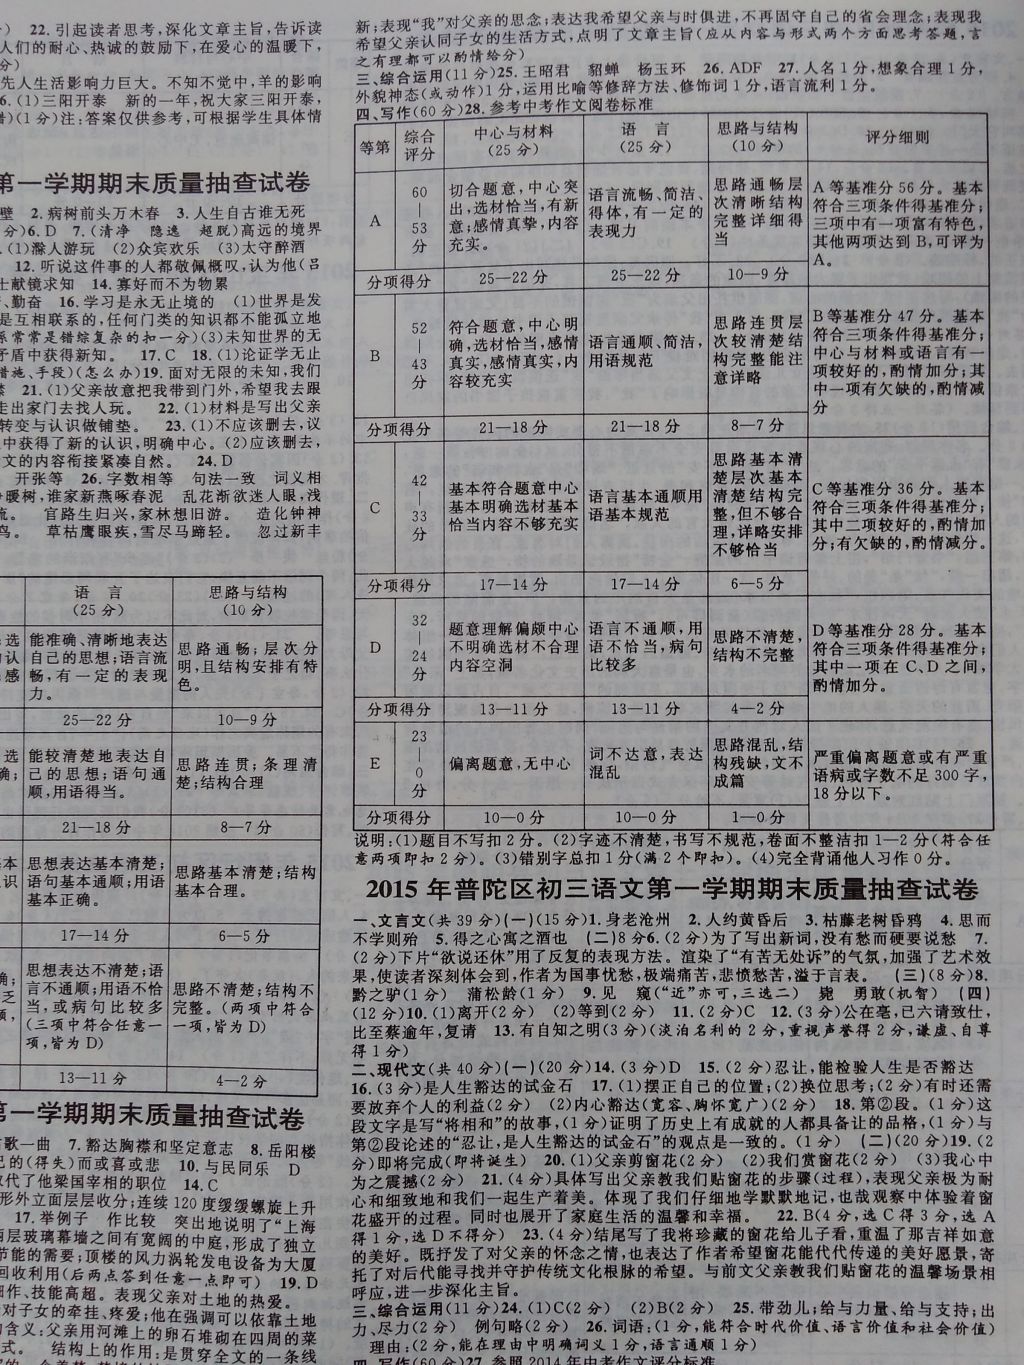 22. 引起读者思考,深化文章主旨,告诉读
人们的耐心、热诚的鼓励下,在爱心的温暖下,
分)
先人生活影响力巨大。不知不觉中,羊的影响
6. (1)三阳开泰 新的一年,祝大家三阳开泰,
(1分)注:答案仅供参考,可根据学生具体情
第一学期期末质量抽查试卷
壁 2. 病树前头万木春 3. 人生自古谁无死
分)6. D 7. (清净 隐逸 超脱)高远的境界
(1)滁人游玩 (2)众宾欢乐 (3)太守醉酒
12. 听说这件事的人都敬佩概叹,认为他(吕
士献镜求知 14. 寡好而不为物累
、勤奋 16. 学习是永无止境的 (1)世界是发
是互相联系的,任何门类的知识都不能孤立地
系常常是错综复杂的扣一分)(3)未知世界的无
矛盾中获得新知。 17. C 18. (1)论证学无止
措施、手段)(怎么办)19. 面对无限的未知,我们
21. (1)父亲故意把我带到门外,希望我去跟
走出家门去找人玩。 22. (1)材料是写出父亲
转变与认识做铺垫。 23. (1)不应该删去,议
中获得了新的认识,明确中心。(2)应该删去,
文的内容衔接紧凑自然。 24. D
开张等 26. 字数相等 句法一致 词义相
暖树,谁家新燕啄春泥 乱花渐欲迷人眼,浅
流。 官路生归兴,家林想旧游。 造化钟神
鸟。 草枯鹰眼疾,雪尽马蹄轻。 忽过新丰
语 言
(25 分)
思路与结构
(10 分)
选
能准确、清晰地表达
自己的思想;语言流
畅,有一定的表现
力。
思路通畅;层次分
明,且结构安排有特
色。
25—22 分
10—9 分
选
确;
能较清楚地表达自
己的思想;语句通
顺,用语得当。
思路连贯;条理清
楚;结构合理
21—18 分
8—7 分
思想表达基本清楚;
语句基本通顺;用语
基本正确。
思路基本清楚;结构
基本合理。
17—14 分
6—5 分
思想表达不清楚;语
言不通顺;用语不恰
当,或病句比较多
(三项中符合任意一
项,皆为 D)
思路不清楚;结构不
完整。(两项中符合
一项,皆为 D)
13—11 分
4—2 分
第一学期期末质量抽查试卷
歌一曲 7. 豁达胸襟和坚定意志 8. 岳阳楼
己的(得失)而或喜或悲 10. 与民同乐 D
取代了他梁国宰相的职位 14. C
形外立面层层收分;连续 120 度缓缓螺旋上升
17. 举例子 作比较 突出地说明了“上海
两层玻璃幕墙之间有宽阔的中庭,形成了独立
节能的需要;顶楼的风力涡轮发电设备为大厦
回收利用(后两点答到任意一点即可) 19. D
细作、技能高超。表现父亲对土地的热爱。
对子女的牵挂、疼爱;他在强调可以依靠土地
的含义:父亲用河滩上的卵石堆砌在四周的菜
式。 结构上的作用:是贯穿全文的一条线
新;表现“我”对父亲的思念;表达我希望父亲与时俱进,不再固守自己的省会理念;表现我
希望父亲认同子女的生活方式,点明了文章主旨(应从内容与形式两个方面思考答题,言
之有理都可以酌情给分)
三、综合运用(11 分)25. 王昭君 貂蝉 杨玉环 26. ADF 27. 人名 1 分,想象合理 1 分,
外貌神态(或动作)1 分,运用比喻等修辞方法、修饰词 1 分,语言流利 1 分。
四、写作(60 分)28. 参考中考作文阅卷标准
等第
综合
评分
中心与材料
(25 分)
语 言
(25 分)
思路与结构
(10 分)
评分细则
A
60
|
53
分
切合题意,中心突
出,选材恰当,有新
意;感情真挚,内容
充实。
语言流畅、简洁、
得体,有一定的
表现力
思路通畅层
次清晰结构
完整详细得
当
A 等基准分 56 分。基本
符合三项条件得基准分;
三项中有一项富有特色,
其他两项达到 B,可评为
A。
分项得分
25—22 分
25—22 分
10—9 分
B
52
|
43
分
符合题意,中心明
确,选材恰当,感情
真实,感情真实,内
容较充实
语言通顺、简洁,
用语规范
思路连贯层
次较清楚结
构完整能注
意详略
B 等基准分 47 分。基本
符合三项条件得基准分;
中心与材料或语言有一
项较好的,酌情加分;其
中一项有欠缺的,酌情减
分
分项得分
21—18 分
21—18 分
8—7 分
C
42
|
33
分
基本符合题意中心
基本明确选材基本
恰当内容不够充实
语言基本通顺用
语基本规范
思路基本清
楚层次基本
清楚结构完
整,但不够合
理,详略安排
不够恰当
C 等基准分 36 分。基本
符合三项条件得基准分;
其中二项较好的,酌情加
分;有欠缺的,酌情减分。
分项得分
17—14 分
17—14 分
6—5 分
D
32
|
24
分
题意理解偏颇中心
不明确选材不合理
内容空洞
语言不通顺,用
语不恰当,病句
比较多
思路不清楚,
结构不完整
D 等基准分 28 分。基本
符合三项条件得基准分;
其中一项在 C、D 之间,
酌情加分。
分项得分
13—11 分
13—11 分
4—2 分
E
23
|
0
分
偏离题意,无中心
词不达意,表达
混乱
思路混乱,结
构残缺,文不
成篇
严重偏离题意或有严重
语病或字数不足 300 字,
18 分以下。
分项得分
10—0 分
10—0 分
1—0 分
说明:(1)题目不写扣 2 分。(2)字迹不清楚,书写不规范,卷面不整洁扣 1—2 分(符合任
意两项即扣 2 分)。(3)错别字总扣 1 分(满 2 个即扣)。(4)完全背诵他人习作 0 分。
2015 年普陀区初三语文第一学期期末质量抽查试卷
一、文言文(共 39 分)(一)(15 分)1. 身老沧州 2. 人约黄昏后 3. 枯藤老树昏鸦 4. 思而
不学则殆 5. 得之心寓之酒也 (二)8 分6. (2 分)为了写出新词,没有愁而硬要说愁 7.
(2 分)下片“欲说还休”用了反复的表现方法。渲染了“有苦无处诉”的气氛,加强了艺术效
果,使读者深刻体会到,作者为国事忧愁,极端痛苦,悲愤愁苦,溢于言表。 (三)(8 分)8.
黔之驴(1 分) 蒲松龄(1 分) 9. 见 窥(“近”亦可,三选二) 毙 勇敢(机智) (四)
(12 分)10. (1)离开(2 分) (2)等到(2 分) 11. (2 分)C 12. (3 分)公在亳,已六请致仕,
比至蔡逾年,复请 13. 有自知之明(3 分)(淡泊名利的 2 分,重视声誉得 2 分,谦虚、自尊
得 1 分)
二、现代文(共 40 分)(一)(20 分)14. (3 分)D 15. (2 分)忍让,能检验人生是否豁达
16. (3 分)是人生豁达的试金石 17. (1)摆正自己的位置;(2)换位思考;(2 分)有时还需
要放弃个人的利益(2 分) (2)内心豁达(宽容、胸怀宽广)(2 分) 18. 第②段。(1 分)这
段文字是写“将相和”的故事,(1 分)证明了历史上有成就的人都具备让的品格,(1 分)与
第②段论述的“忍让,是人生豁达的试金石”的观点是一致的。(1 分) (二)(20 分)19. (2
分)即将完成(即将诞生) 20. (1)父亲剪窗花(2 分) (2)我们赏窗花(2 分) (3)我心中
为之震撼(2 分) 21. (4 分)具体写出父亲教我们贴窗花的步骤(过程),表现父亲极为耐
心和细致地和我们一起生产着美。体现了我们仔细地学默默地记,也哉观察中体验着窗
花盛开的过程。同时也展开了家庭生活的温馨和幸福。 22. B(4 分,选 C 得 3 分,选 A
得 1 分,选 D 不得分) 23. (4 分)结尾写了我将珍藏的窗花给儿子看,重温了那吉祥如意
的美好。既抒发了对父亲的怀念之情,也表达了作者希望窗花能代代传递的美好愿景,寄
托了对后代能寻找并守护传统文化根脉的希望。与前文父亲教我们贴窗花的温馨场景相
呼应,进一步深化主旨。
三、综合运用(11 分)24. (1)C(2 分) (2)B(2 分) 25. 带劲儿;给与力量、给与支持;出
力、尽力(2 分) 例句略(2 分) 26. 词语:(1 分,能符合时代价值、语言价值和社会价值)
理由:(2 分,能在理由中明确词义 1 分,语言通顺 1 分)
四、写作(60 分)27. 参照 2014 年中考作文评分标准